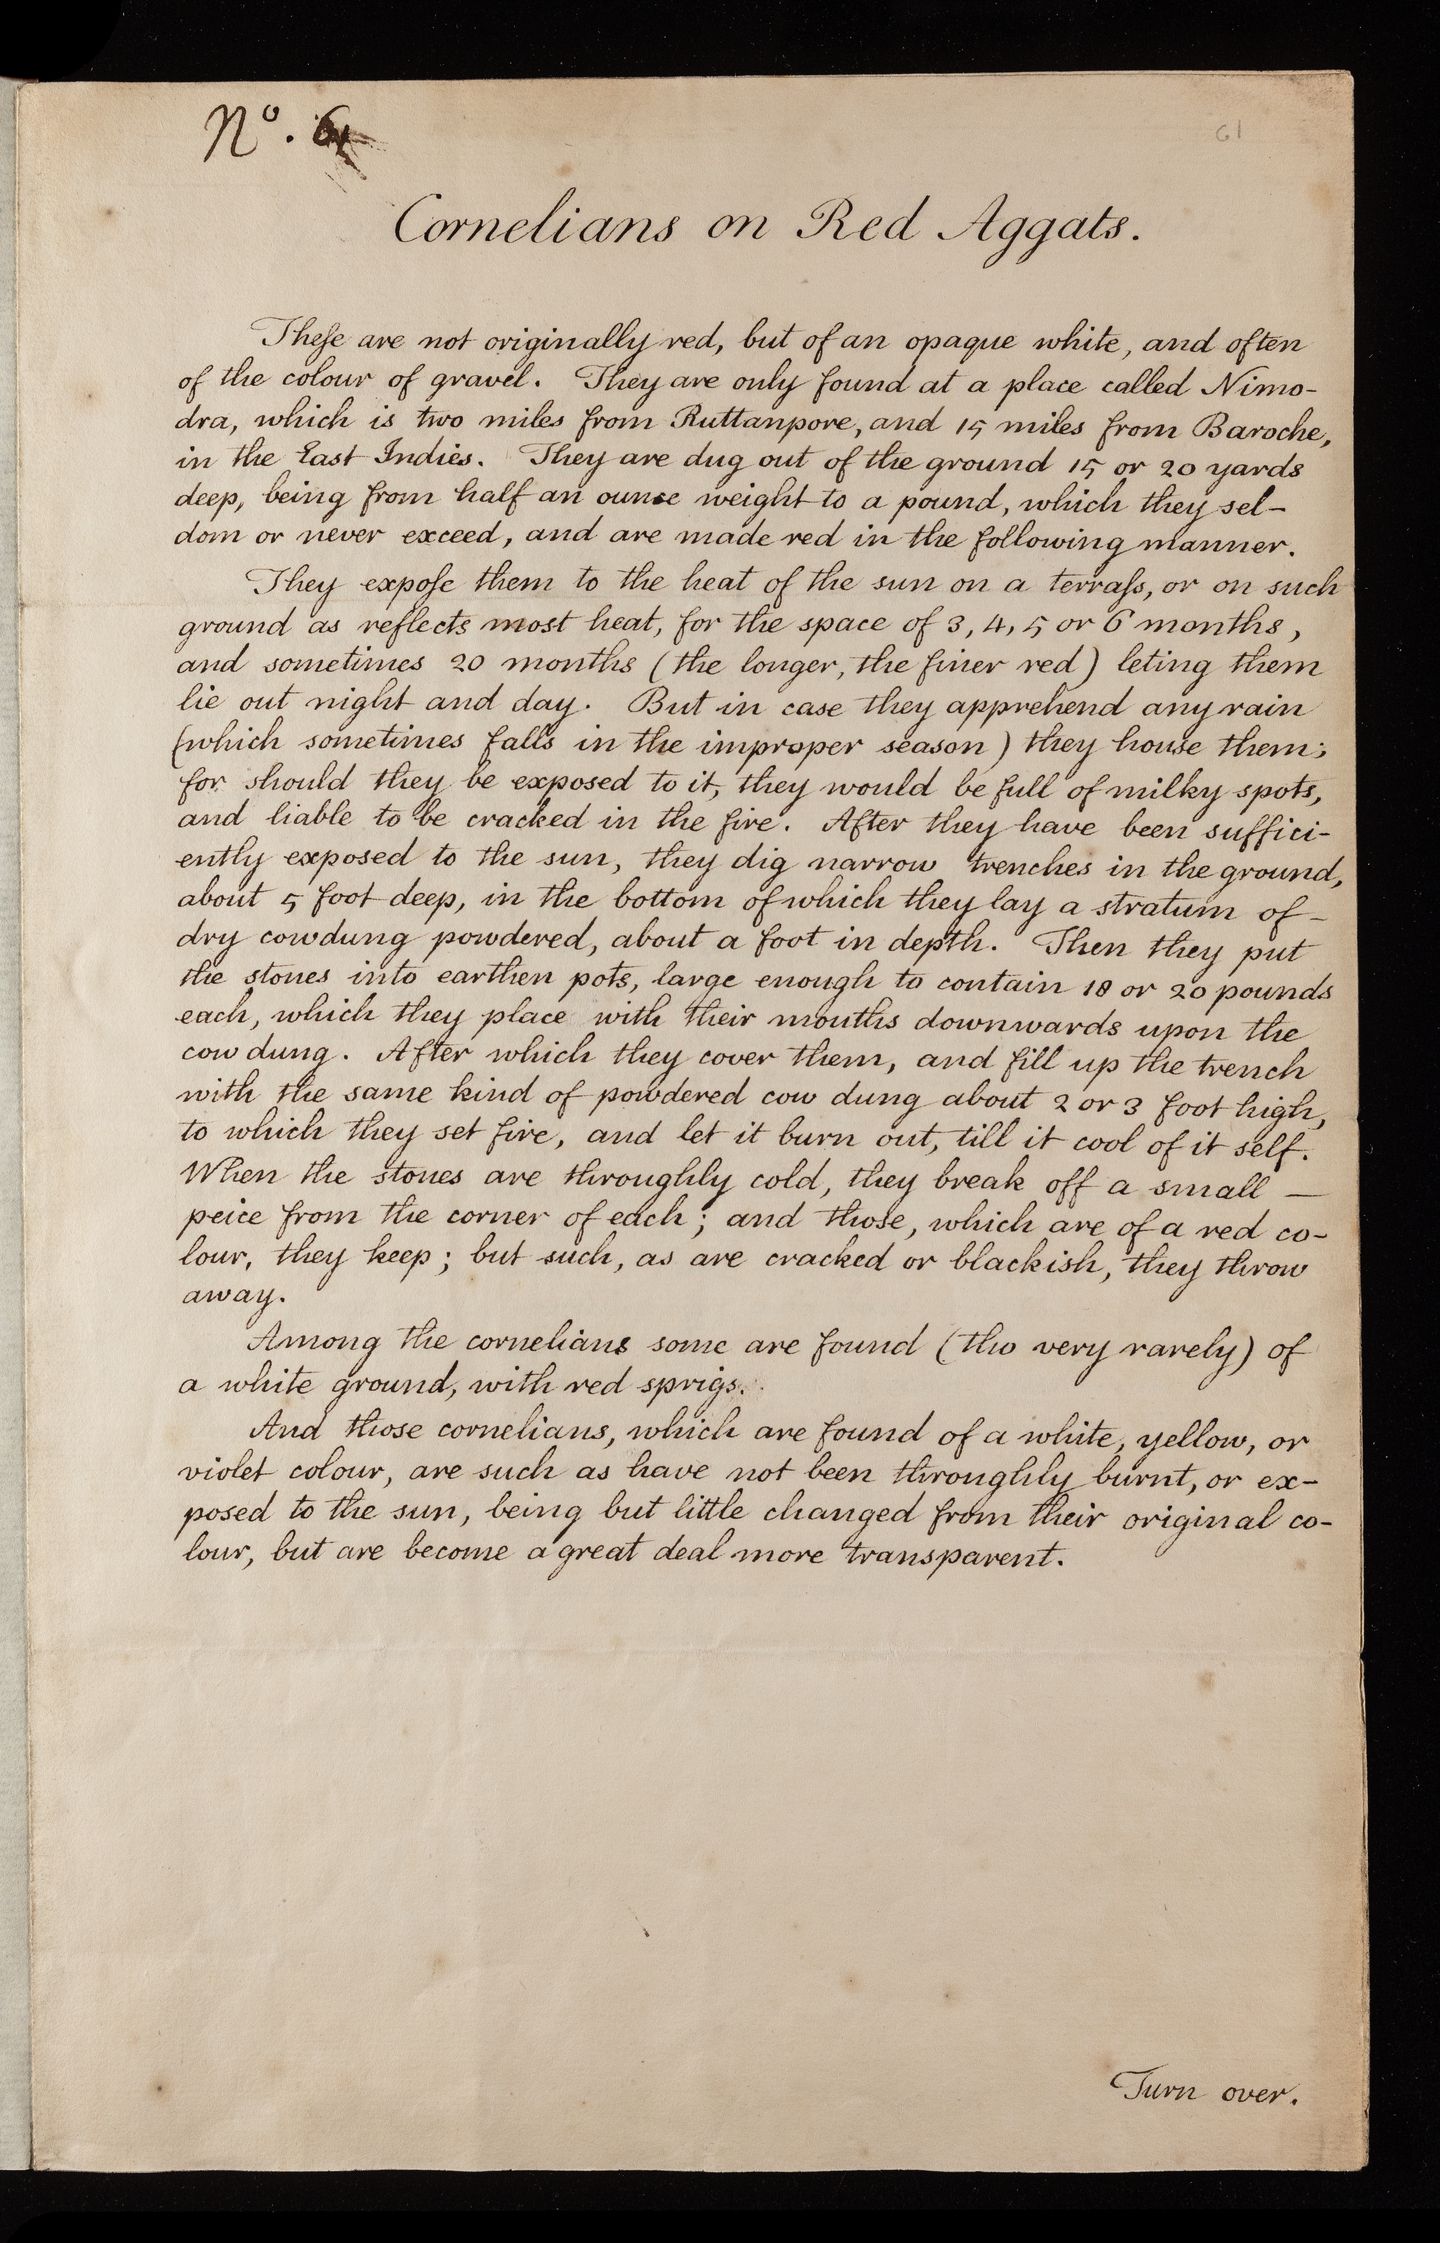 Nº. 61
61
Cornelians on Red Aggats.
Theſe are not originally red, but of an opaque white, and often
of the colour of gravel. They are only found at a place called Nimo-
dra, which is two miles from Ruttanpore, and 15 miles from Baroche,
in the East Indies. They are dug out of the ground 15 or 20 yards
deep, being from half an ounce weight to a pound, which they sel-
dom or never exceed, and are made red in the following manner.
They expoſe them to the heat of the sun on a terraſs, or on such
ground as reflects most heat, for the space of 3, 4, 5 or 6 months,
and sometimes 20 months (the longer, the finer red) leting them
lie out night and day. But in case they apprehend any rain
(which sometimes falls in the improper season) they house them;
for should they be exposed to it, they would be full of milky spots,
and liable to be cracked in the fire. After they have been suffici-
ently exposed to the sun, they dig narrow trenches in the ground,
about 5 foot deep, in the bottom of which they lay a stratum of -
dry cowdung powdered, about a foot in depth. Then they put
the stones into earthen pots, large enough to contain 18 or 20 pounds
each, which they place with their mouths downwards upon the
cow dung. After which they cover them, and fill up the trench
with the same kind of powdered cow dung about 2 or 3 foot high,
to which they set fire, and let it burn out, till it cool of it self.
When the stones are throughly cold, they break off a small —
peice from the corner of each; and those, which are of a red co-
lour, they keep; but such, as are cracked or blackish, they throw
away.
Among the cornelians some are found (tho very rarely) of
a white ground, with red sprigs.
And those cornelians, which are found of a white, yellow, or
violet colour, are such as have not been throughly burnt, or ex-
posed to the sun, being but little changed from their original co-
lour, but are become a great deal more transparent.
Turn over.